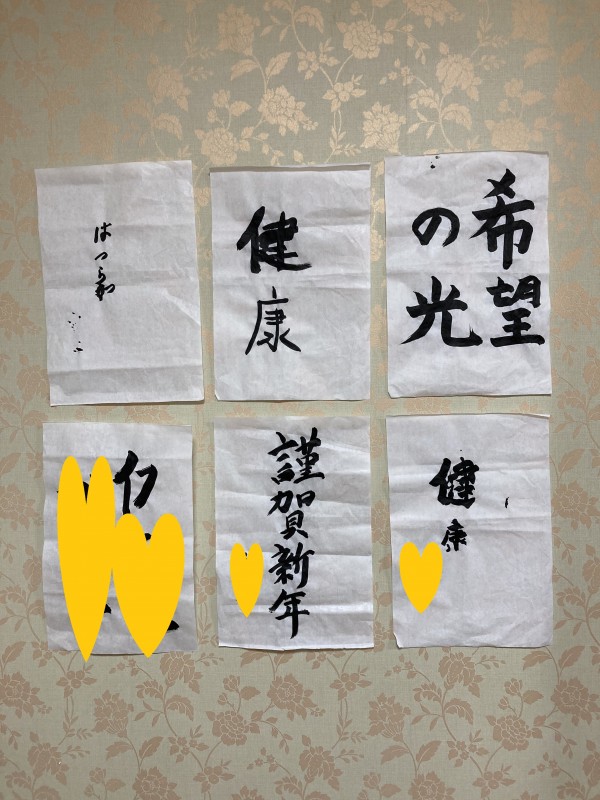 はつら
健康
希望
の光
謹賀新年
健康